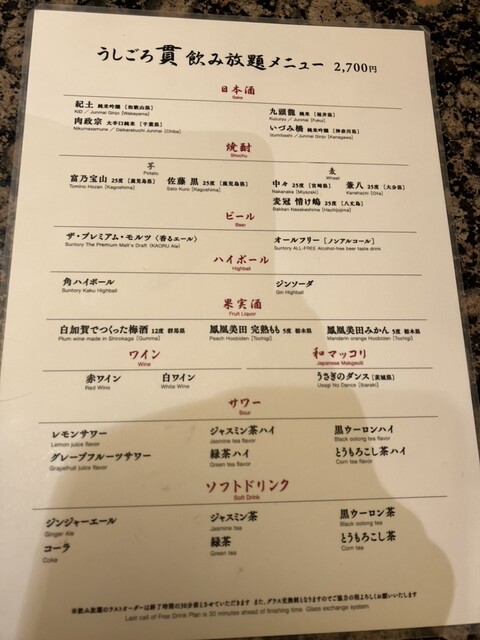 うしごろ 貫 飲み放題メニュー 2,700円
日本酒
Sake
紀土 純米吟醸 [和歌山県]
KID / Junmai Ginjo [Wakayama]
九頭龍 純米 [福井県]
Kuzuryu / Junmai [Fukui]
肉政宗 大辛口純米 [千葉県]
Nikumasamune / Daikarakuchi Junmai [Chiba]
いづみ橋 純米吟醸 [神奈川県]
Izumibashi / Junmai Ginjo [Kanagawa]
焼酎
Shochu
芋
Potato
麦
Wheat
富乃宝山 25度 [鹿児島県]
Tomino Hozan [Kagoshima]
佐藤 黒 25度 [鹿児島県]
Sato Kuro [Kagoshima]
中々 25度 [宮崎県]
Nakanaka [Miyazaki]
兼八 25度 [大分県]
Kanehachi [Oita]
麦冠 情け嶋 25度 [八丈島]
Bakkan Nasakeshima [Hachijojima]
ビール
Beer
ザ・プレミアム・モルツ〈香るエール〉
Suntory The Premium Malt's Draft 〈KAORU Ale〉
オールフリー [ノンアルコール]
Suntory ALL-FREE Alcohol-free beer taste drink
ハイボール
Highball
角ハイボール
Suntory Kaku Highball
ジンソーダ
Gin Highball
果実酒
Fruit Liquor
白加賀でつくった梅酒 12度 群馬県
Plum wine made in Shirokaga [Gunma]
鳳凰美田 完熟もも 5度 栃木県
Peach Hoobiden [Tochigi]
鳳凰美田みかん 5度 栃木県
Mandarin orange Hoobiden [Tochigi]
ワイン
Wine
和マッコリ
Japanese Makgeolli
赤ワイン
Red Wine
白ワイン
White Wine
うさぎのダンス [茨城県]
Usagi No Dance [Ibaraki]
サワー
Sour
レモンサワー
Lemon juice flavor
ジャスミン茶ハイ
Jasmine tea flavor
黒ウーロンハイ
Black oolong tea flavor
グレープフルーツサワー
Grapefruit juice flavor
緑茶ハイ
Green tea flavor
とうもろこし茶ハイ
Corn tea flavor
ソフトドリンク
Soft Drink
ジンジャーエール
Ginger Ale
ジャスミン茶
Jasmine tea
黒ウーロン茶
Black oolong tea
コーラ
Coke
緑茶
Green tea
とうもろこし茶
Corn tea
※飲み放題のラストオーダーは終了時間の30分前とさせていただきます また、グラス交換制となりますのでご協力の程よろしくお願いいたします
Last call of Free Drink Plan is 30 minutes ahead of finishing time. Glass exchange system